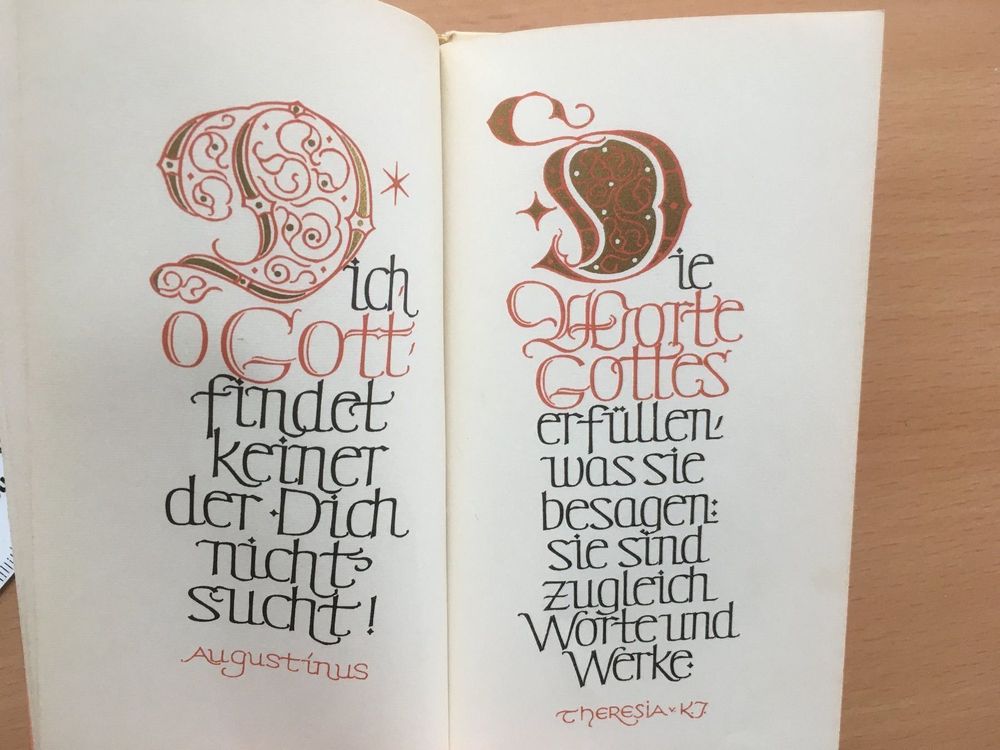 Dich,
O Gott,
findet
keiner
der · Dich
nicht
sucht!
Augustinus
Die
Worte
Gottes
erfüllen,
was sie
besagen:
sie sind
zugleich
Worte und
Werke.
Theresia v. K. J.